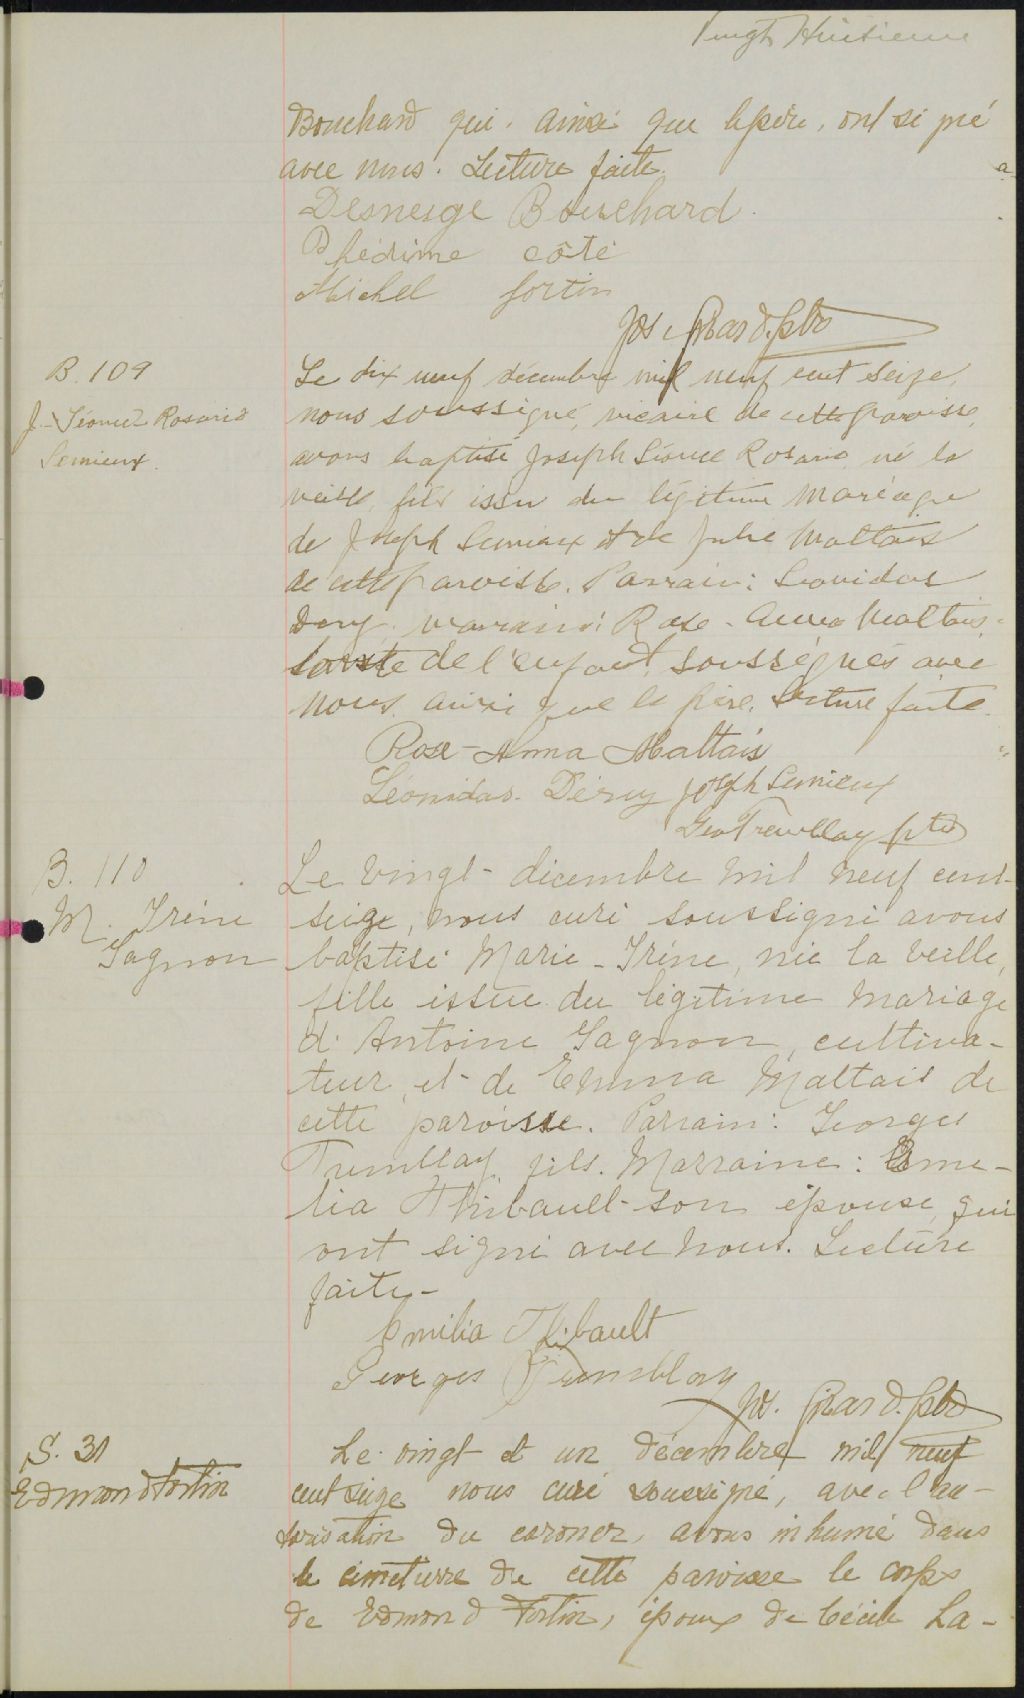 Vingt Huitième
Bouchard qui, ainsi que le père, ont signé
avec nous. Lecture faite.
Desneige Bouchard
Phédime côté
Michel fortin
Jos. Girard. ptre
B. 109
J. Léonce Rosario
Lemieux.
Le dix neuf décembre mil neuf cent seize,
nous soussigné, vicaire de cette paroisse,
avons baptisé Joseph Léonce Rosario né la
veille, fils issu du légitime mariage
de Joseph Lemieux et de Julie Maltais
de cette paroisse. Parrain: Léonidas
Dery, marraine: Rose-Anna Maltais,
tante de l'enfant, soussignés avec
nous ainsi que le père. Lecture faite.
Rose-Anna Maltais
Léonidas Déry Joseph Lemieux
Geo Tremblay ptre
B. 110
M. Irène
Gagnon
Le vingt-décembre mil neuf cent-
seize, nous curé soussigné avons
baptisé Marie-Irène, née la veille,
fille issue du légitime mariage
d'Antoine Gagnon, cultiva-
teur, et de Emma Maltais de
cette paroisse. Parrain: Georges
Tremblay, fils. Marraine: Eme-
lia Thibault son épouse, qui
ont signé avec nous. Lecture
faite-
Emilia Thibault
Georges Tremblay
Jos. Girard. ptre
S. 31
Edmond Fortin
Le vingt et un décembre mil neuf
cent seize nous curé soussigné, avec l'au-
torisation du coroner, avons inhumé dans
le cimetière de cette paroisse le corps
de Edmond Fortin, époux de Cécile La-